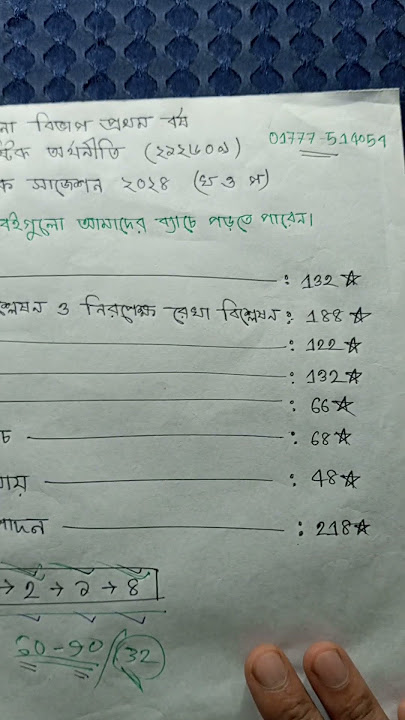 না বিভাগ প্রথম বর্ষ
ষ্টিক অর্থনীতি (২১২৫০৯)
01777-514054
ক সাজেশন ২০২৪ (খ ও গ)
বইগুলো আমাদের ব্যাচে পড়তে পারেন।
: 132 ☆
শ্লেষন ও নিরপেক্ষ রেখা বিশ্লেষন : 188 ☆
: 122 ☆
: 132 ☆
: 66 ☆
চ : 68 ☆
ায় : 48 ☆
পাদন : 218 ☆
→ 2 → 2 → 8
60-90/32